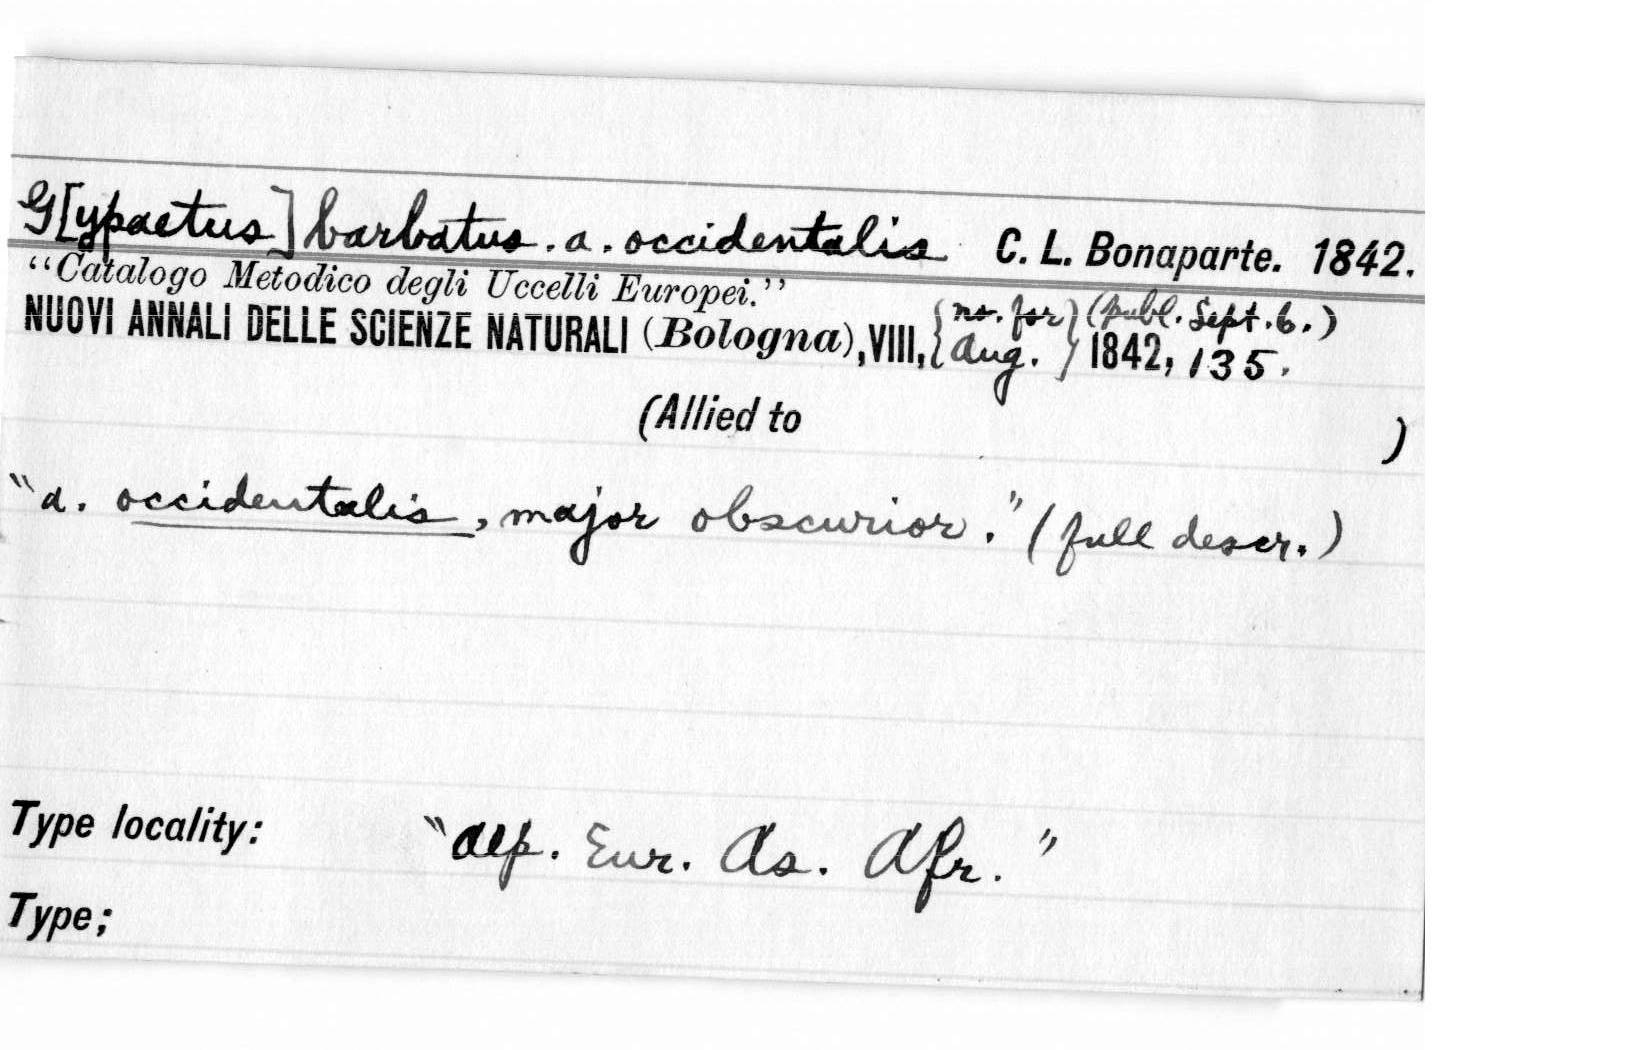 G[ypaetus] barbatus. a. occidentalis C. L. Bonaparte. 1842.
“Catalogo Metodico degli Uccelli Europei.”
NUOVI ANNALI DELLE SCIENZE NATURALI (Bologna), VIII, {no. for Aug.} 1842, (publ. Sept. 6.) 135.
(Allied to )
"a. occidentalis, major obscurior." (full descr.)
Type locality: "Alp. Eur. As. Afr."
Type;